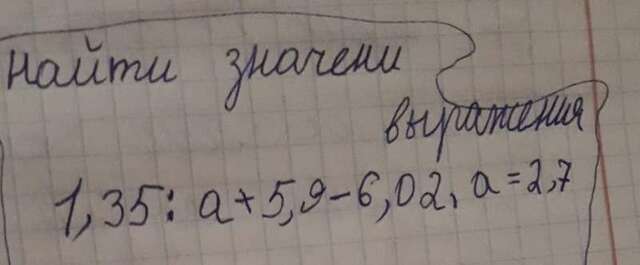 найти значени
выражения
1,35: a+5,9-6,02, a=2,7